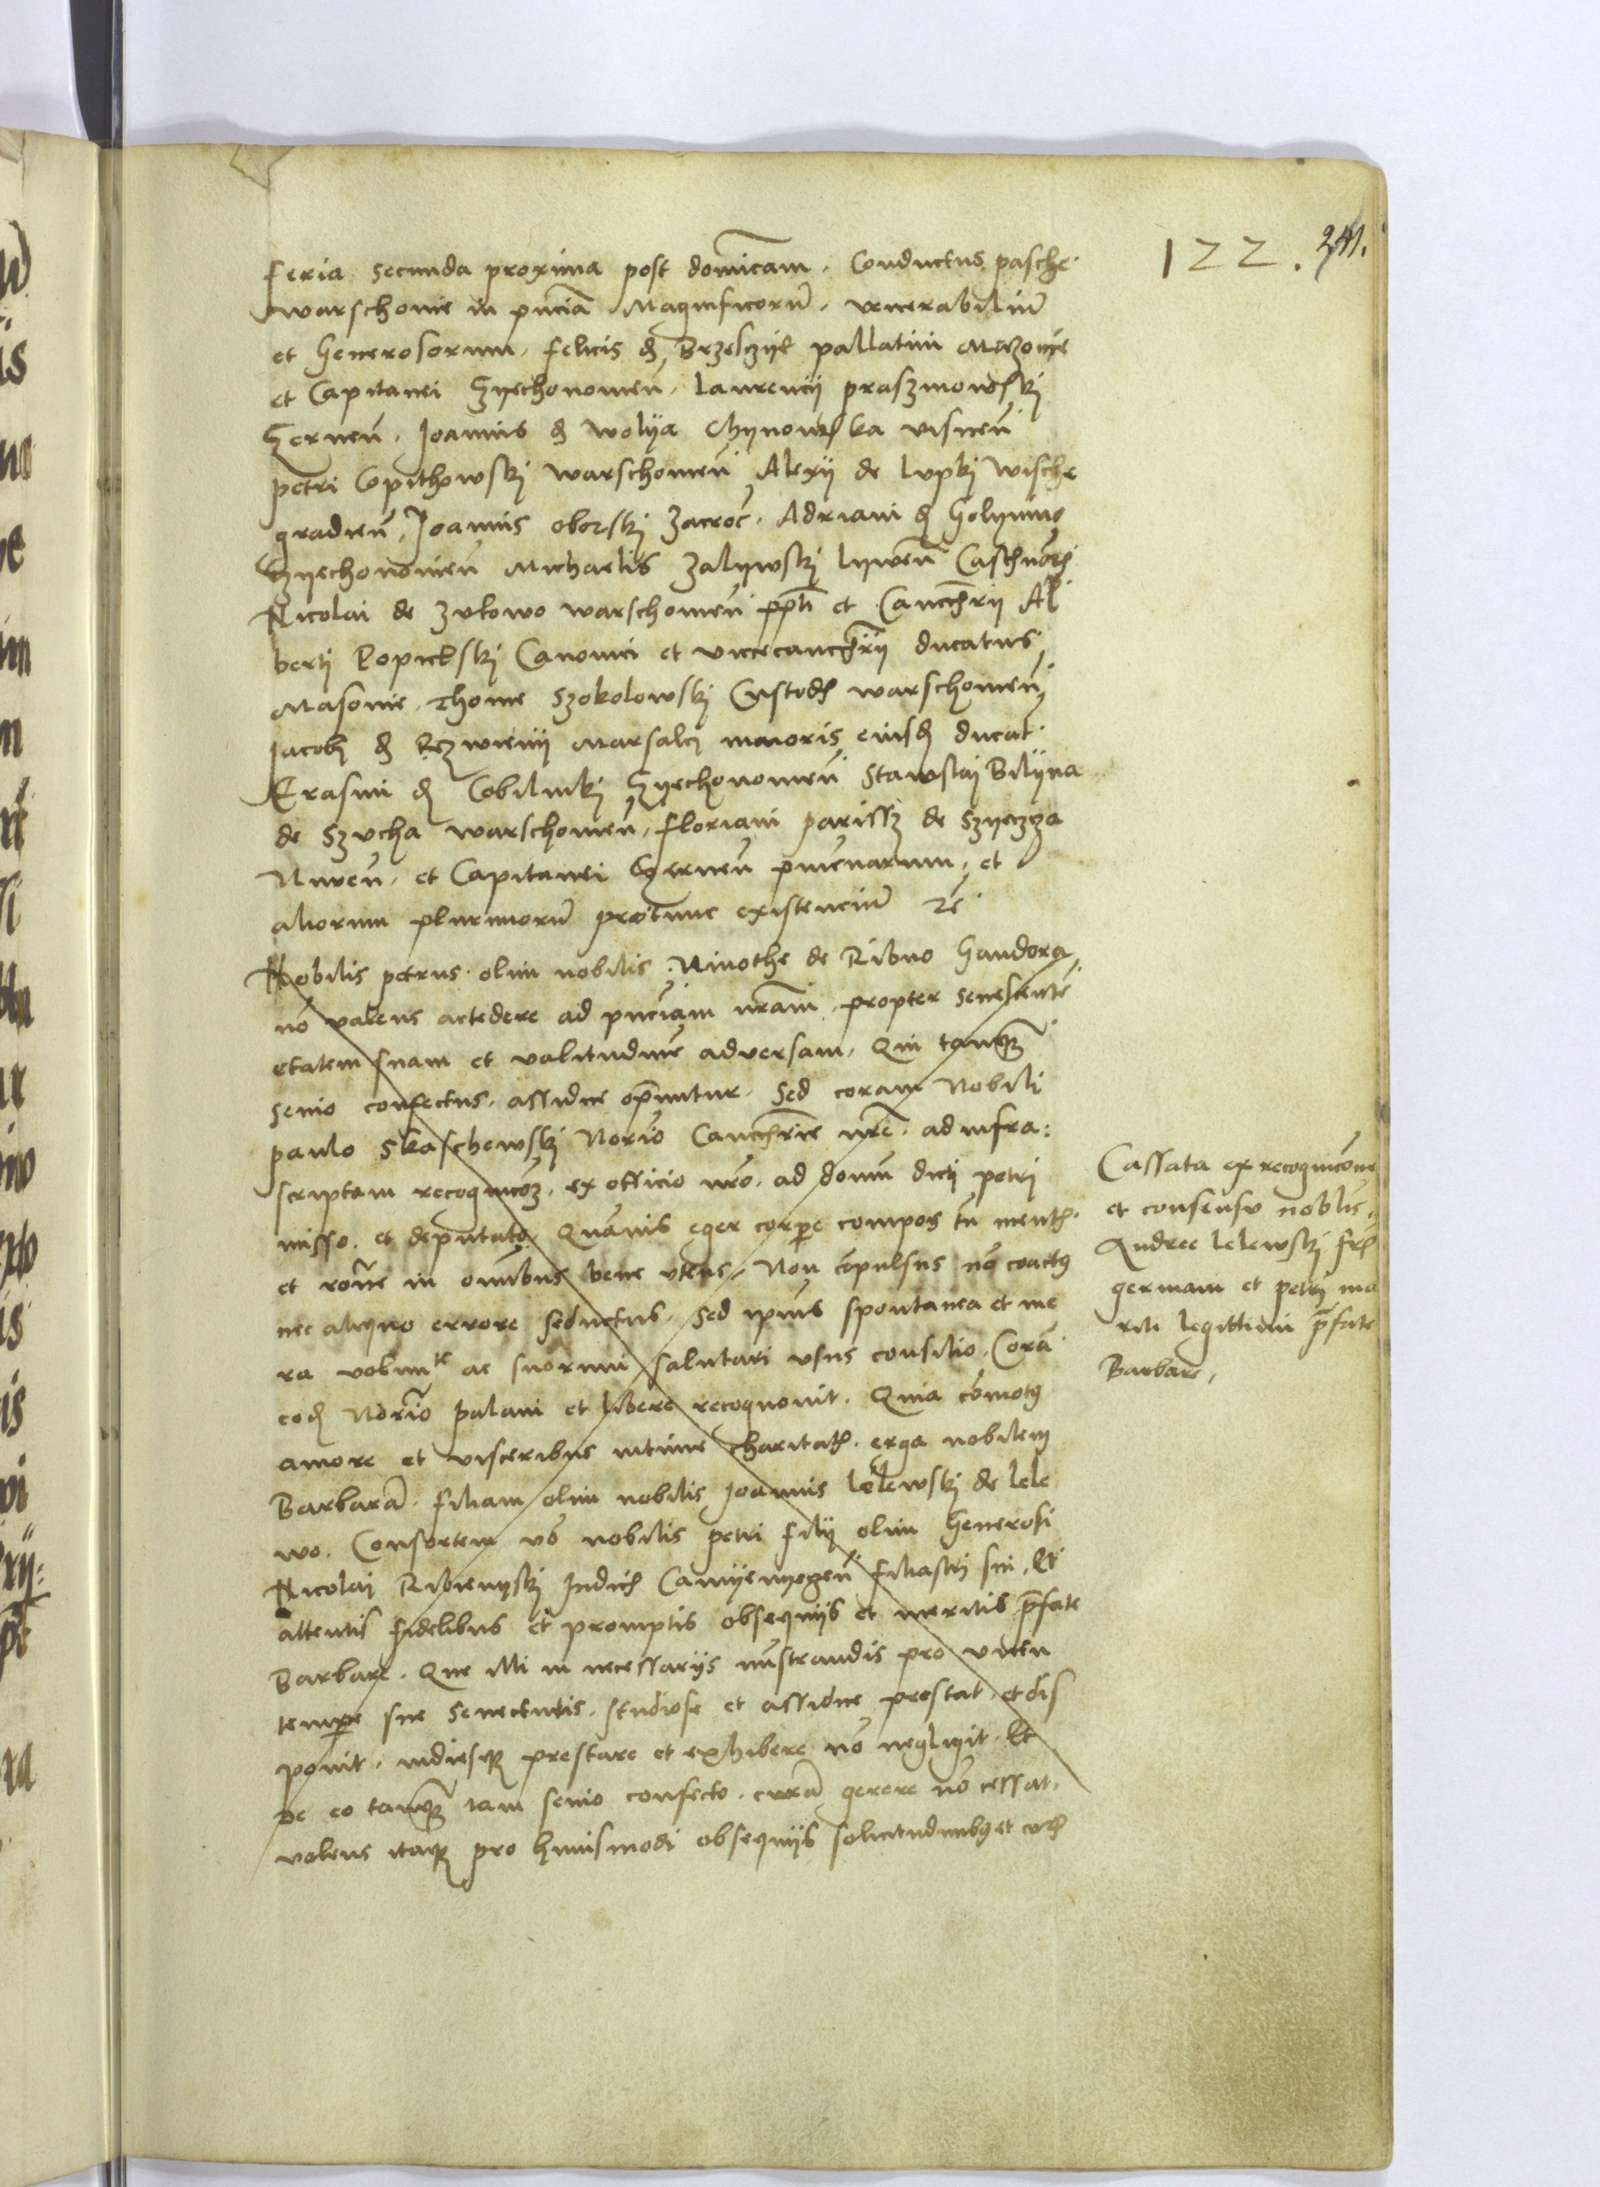 122. 241.
feria secunda proxima post domĩcam. Conductus pasche.
warschovie in pñcia Magnificorũ. venerabiliũ
et Generosorum, felicis đ Brzeschczye pallatini Mazovie
et Capitanei Czyechonovieñ. laurencij praszmowskj
Czerneñ. Joannis đ wolija Chijnowska visneñ
petri Copithowskj warschovieñ Alexij de lupkj wische
gradieñ, Joannis oborskj Zacroč. Adriani đ Golymino
Czyechonovieñ Michaelis Zalywskj lyweñ Castellanorũ
Nicolai de Zukowo warschovieñ ppti et Cancellrij Al
bertj Popielskj Canonici et vicecancellrij ducatus
Masovie. Thome Szokolowskj Custodis warschovieñ,
Jacobj đ Rzwienij Marsalci maioris eiusđ ducat.
Erasmi đ Cobilnikj Czyechonovieñ Stanislai Bilijna
de Szucha warschovieñ, floriani parissz de
Nureñ, et Capitanei Czerneñ pincernarum, et
aliorum plurimorũ protunc existenciũ rč
Nobilis petrus olim nobilis Nimothe de Ribno Gandora,
nõ valens accedere ad pñciam nrãm propter senescente
etatem suam et valitudinẽ adversam, Qui tanq̃
senio confectus, assidue opp̃mitur. Sed coram Nobili
paulo Skaschewskj Norio Cancellrie nrẽ. ad infra:
scriptam recognicoẽ. ex officio nrõ. ad domũ dicti petri
misso. et deputato. Quãvis eger corpe compos tñ mentis.
et rone in omibus bene utens, Non cõpulsus nõ coactus
nec aliquo errore seductus, Sed ipius spontanea et me
ra volunte ac suorum salutari usus consilio. Corã
eođ Norio palam et libere recognovit. Quia cõmotus
amore et visceribus intime charitatis erga nobilem
Barbarã. filiam olim nobilis Joannis lelewskj de lele
wo. Consortem vo nobilis petri filij olim Generosi
Nicolai Ribienyskj Judicis Camijenyeczeñ filiastri sui, Et
attentis fidelibus et promptis obsequijs et meritis p̃fate
Barbare. Que illi in necessarijs mĩstrandis pro
tempe sue senectutis. studiose et assidue prestat. et dis
ponit. indiesq̃ prestare et exhibere nõ negligit. Et
de eo tanq̃ iam senio confecto. curã gerere nõ cessat.
volens itaq̃ pro huiusmodi obsequijs solicitudinibus et curis
Cassata ex recognicõne
et consensu noblis.
Andree lelewskj fris
germani et petrj ma
riti legittimi p̃fate
Barbare,